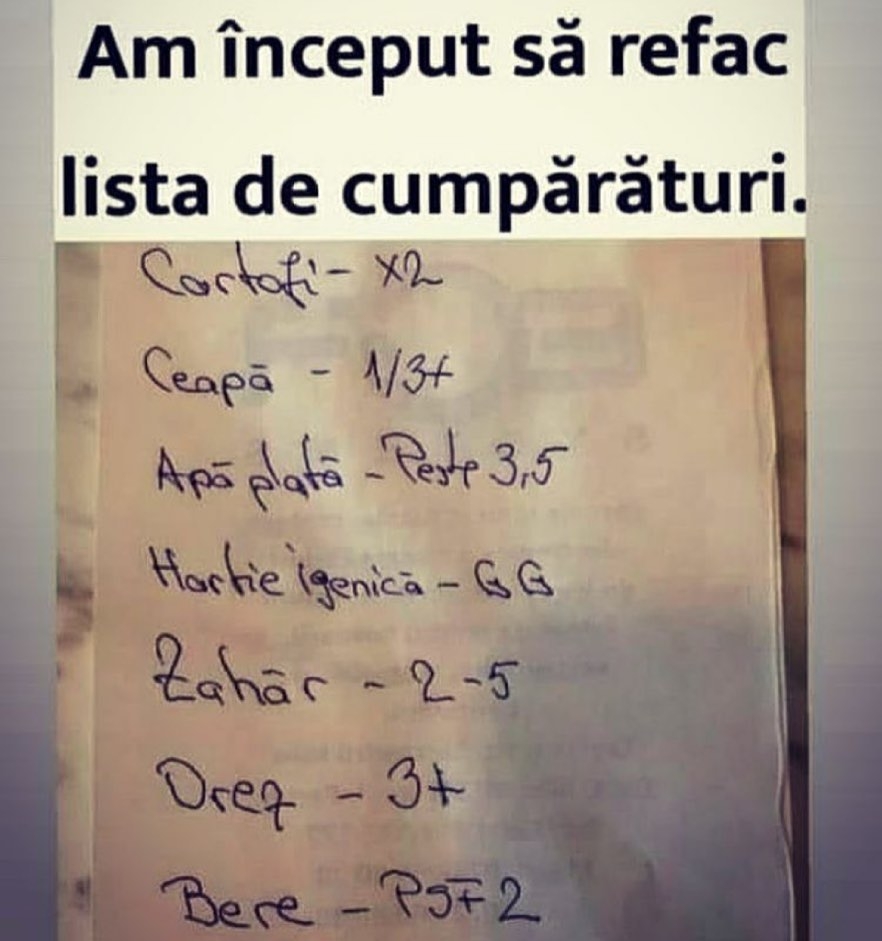 Am început să refac
lista de cumpărături.
Cartofi - x2
Ceapă - 1/3+
Apă plată - Peste 3,5
Hartie igenică - GG
Zahăr - 2-5
Orez - 3+
Bere - PSF2